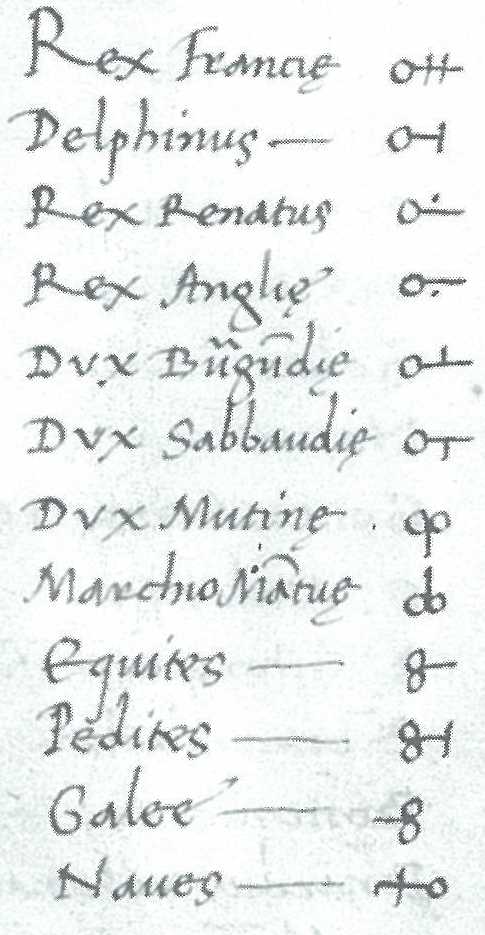 Rex Francię
Delphinus —
Rex Renatus
Rex Anglię
Dvx Bu͂gu͂dię
Dvx Sabbaudię
Dvx Mutinę
Marchio Ma͂tuę
Equites —
Pedites —
Galeę —
Naues —